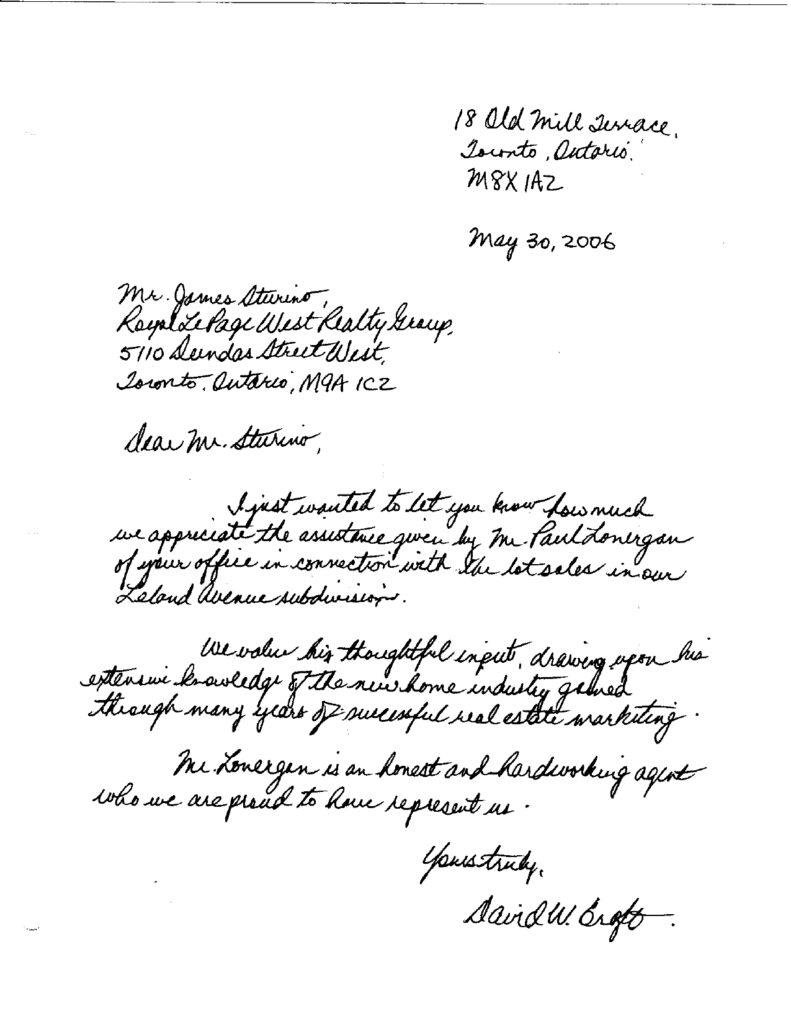 18 Old Mill Terrace,
Toronto, Ontario.
M8X 1A2
May 30, 2006
Mr. James Sturino,
Royal LePage West Realty Group,
5110 Dundas Street West,
Toronto, Ontario, M9A 1C2
Dear Mr. Sturino,
I just wanted to let you know how much
we appreciate the assistance given by Mr. Paul Lonergan
of your office in connection with the lot sales in our
Leland Avenue subdivision.
We value his thoughtful input, drawing upon his
extensive knowledge of the new home industry gained
through many years of successful real estate marketing.
Mr. Lonergan is an honest and hardworking agent
who we are proud to have represent us.
Yours truly,
David W.